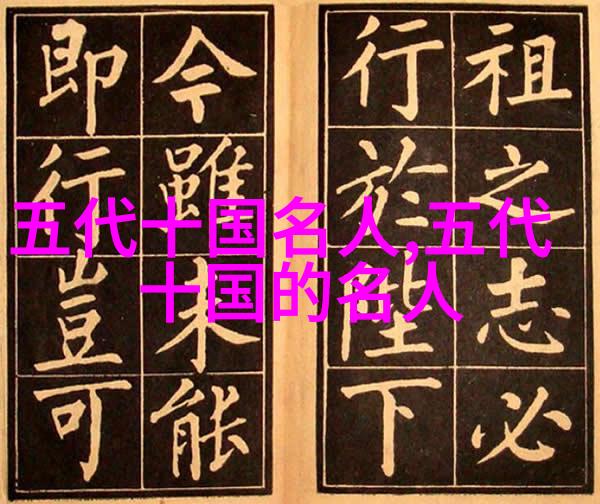 祖之志必
行於陛下
今雖未能
即行豈可
五代十国名人,五代
十国的名人